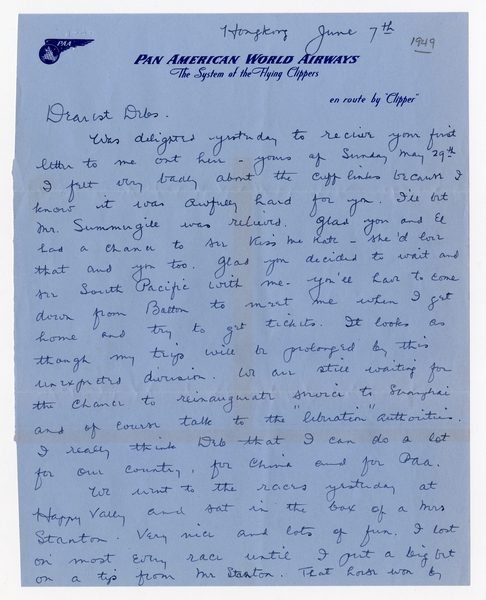 Hongkong June 7th
1949
PAA
PAN AMERICAN WORLD AIRWAYS
The System of the Flying Clippers
en route by "Clipper"
Dearest Debs.
Was delighted yesterday to receive your first
letter to me out here - yours of Sunday May 29th
I felt very badly about the cuff links because I
know it was awfully hard for you. I'll bet
Mr. Summergill was relieved. Glad you and El
had a chance to see Kiss Me Kate - she'd love
that and you too. Glad you decided to wait and
see South Pacific with me - you'll have to come
down from Boston to meet me when I get
home and try to get tickets. It looks as
though my trip will be prolonged by this
unexpected division. We are still waiting for
the chance to reinaugurate service to Shanghai
and of course talk to the "liberation" authorities.
I really think Deb that I can do a lot
for our country, for China and for PAA.
We went to the races yesterday at
Happy Valley and sat in the box of a Mrs
Stanton. Very nice and lots of fun. I lost
on most every race until I put a big bet
on a tip from Mr Stanton. That horse won by